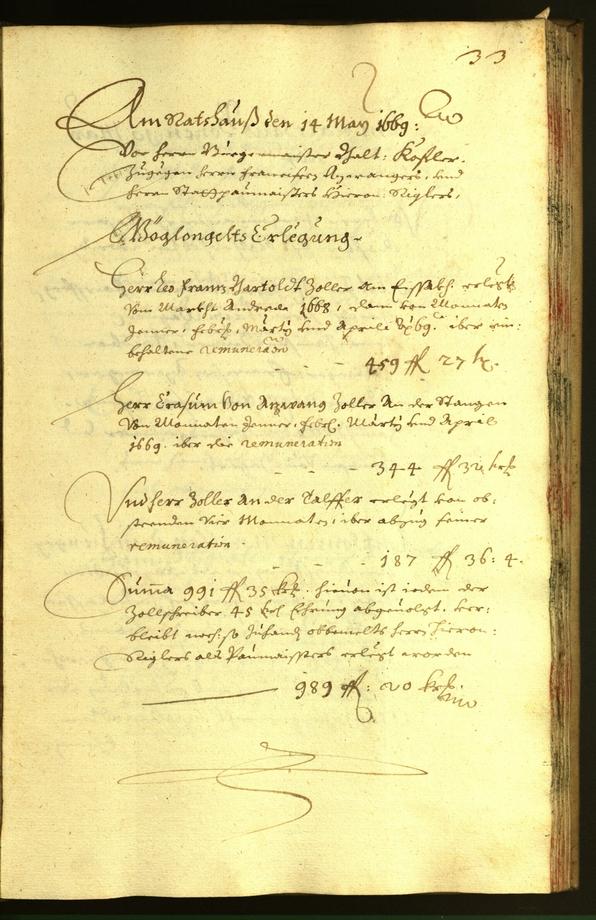 33
Am Ratshauß den 14 May 1669:
Vor herrn Burgermaister Khösler.
Zugegen herrn Franzischen und
herrn Stattpaumaisters Hieron: Riglers,
Wöglongelts Erlegung
Herr Leo Franz Zoller am Eysakh. erlegt
vom Markht Andreae 1668, dann von Monnaten
Jenner, Febr., Marty und Aprili 1669. über ein-
behaltne remuneration
459 fl 27 kr.
Herr Erasum von Anzwang Zoller An der Stangen
von Monnaten Jenner, Febr. Marty und April
1669. iber die remuneration
344 fl 32 kr
Und herr Zoller an der Talffer erlegt von ob-
steenden vier Monnaten, iber abzug seiner
remuneration
187 fl 36: 4.
Suma 991 fl 35 kr. hievon ist iedem der
Zollschreiber 45 kr Ehrung abgevolgt. ver-
bleibt noch, so Zuhandt obbemelts herrn Hieron:
Riglers als Paumaisters erlegt worden
989 fl: 20 kr.